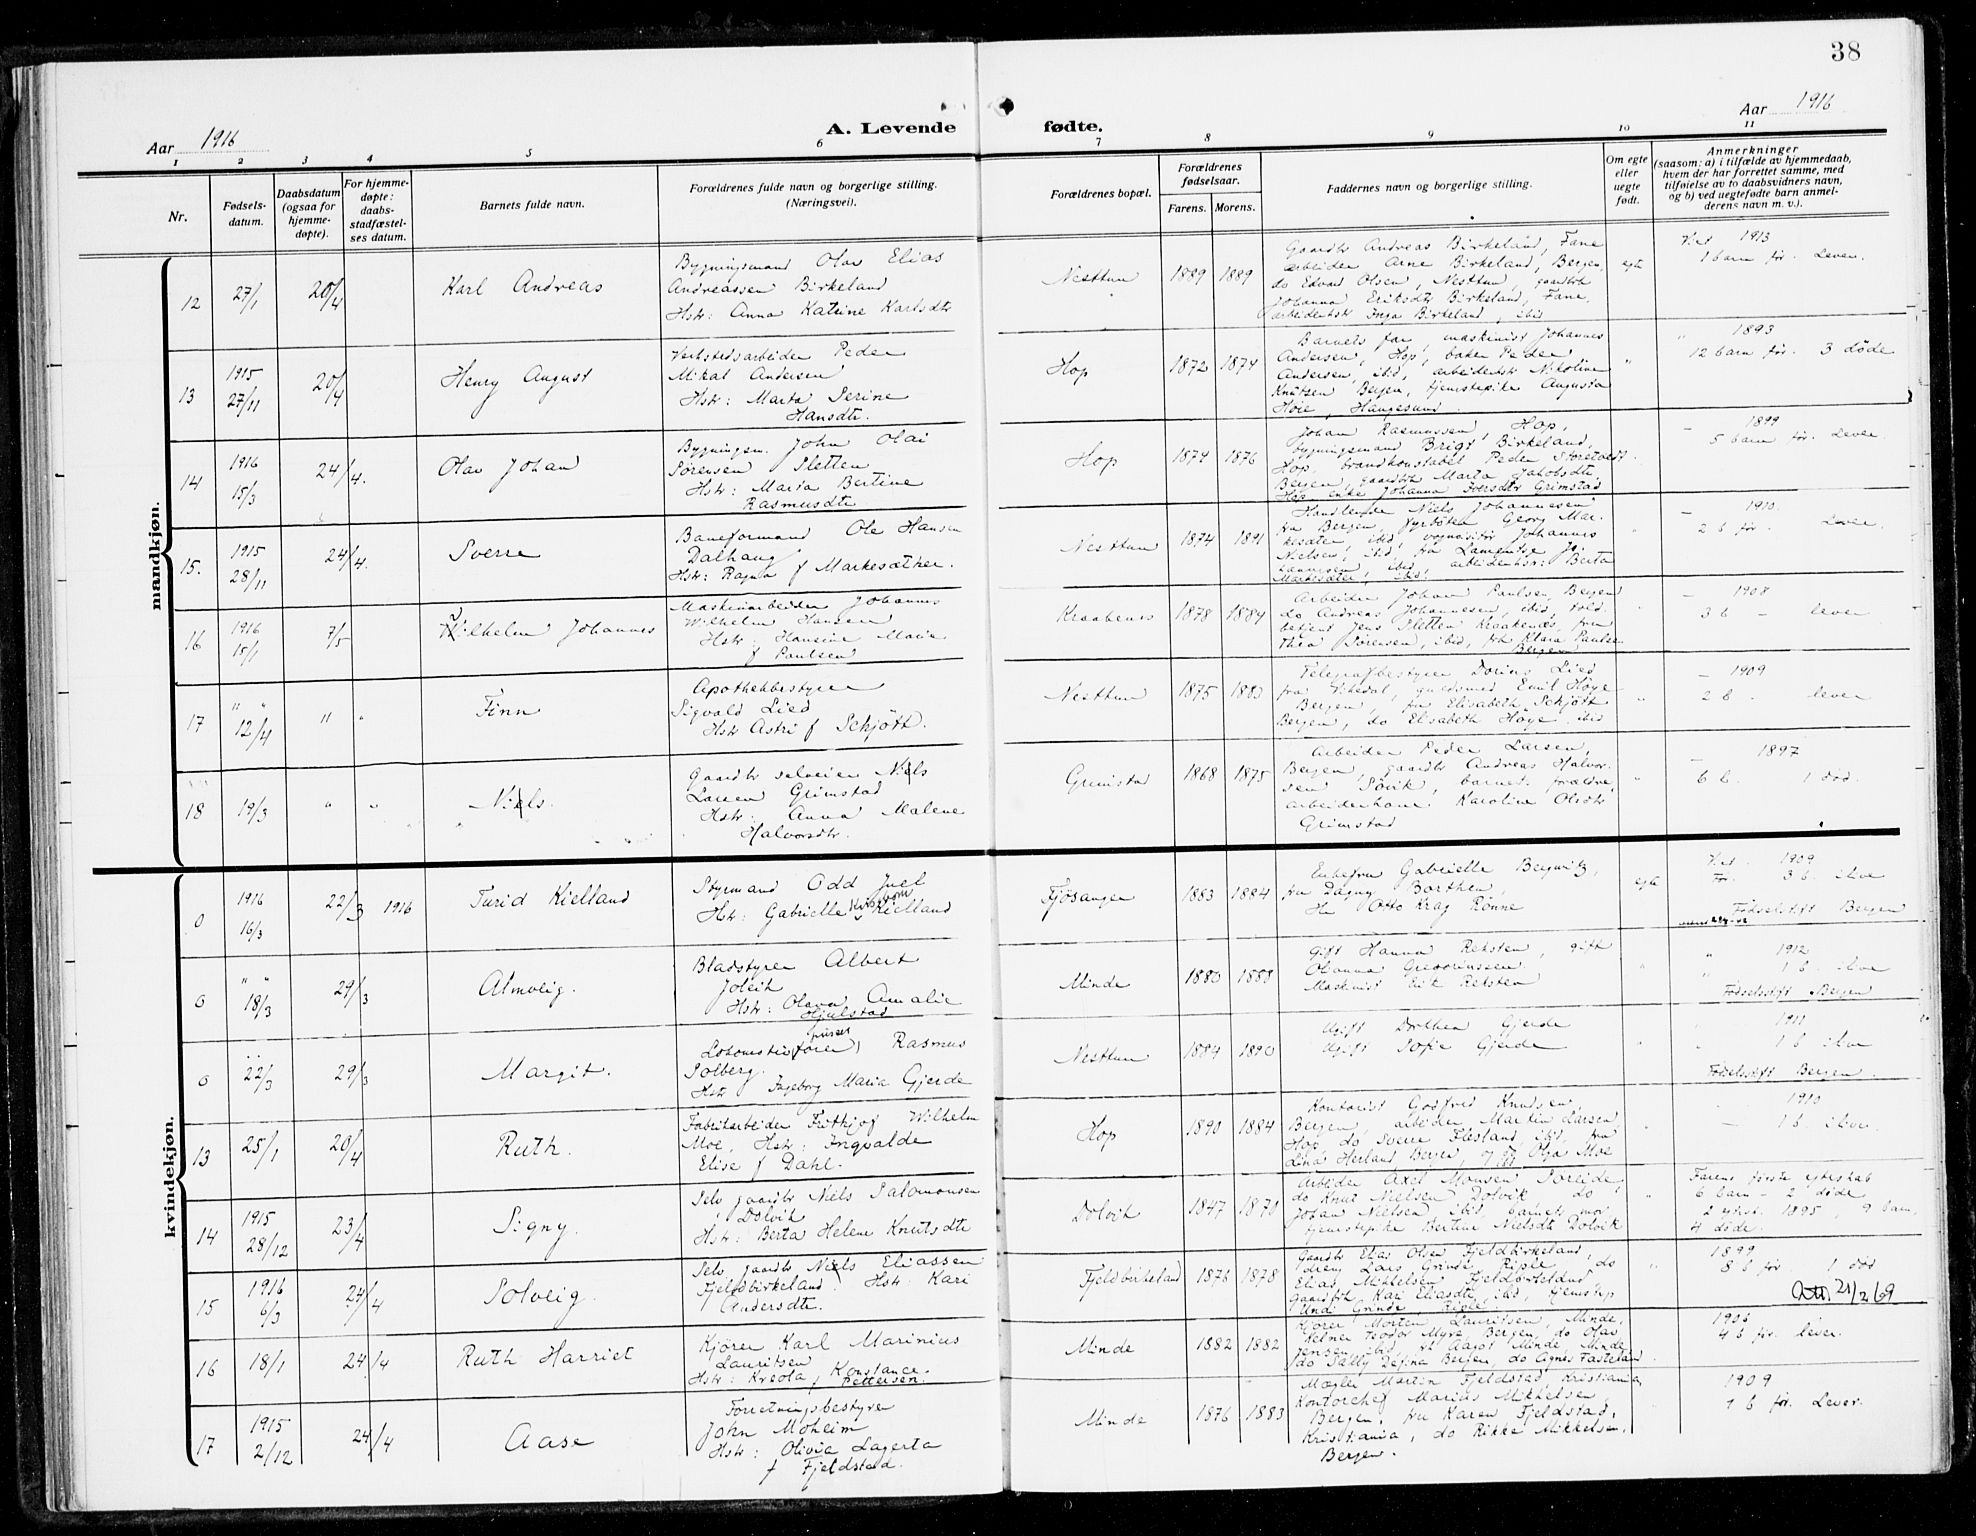 38
Aar 1916
A. Levende fødte.
Aar 1916
1 2 3 4 5 6 7 8 9 10 11
Nr.
Fødsels-
datum.
Daabsdatum
(ogsaa for
hjemme-
døpte).
For hjemme-
døpte:
daabs-
stadfæstel-
ses datum.
Barnets fulde navn.
Forældrenes fulde navn og borgerlige stilling.
(Næringsvei).
Forældrenes bopæl.
Forældrenes
fødselsaar.
Farens. Morens.
Faddernes navn og borgerlige stilling.
Om egte
eller
uegte
født.
Anmerkninger
(saasom: a) i tilfælde av hjemmedaab,
hvem der har forrettet samme, med
tilføielse av to daabsvidners navn,
og b) ved uegtefødte barn anmel-
derens navn m. v.).
mandkjøn.
12 27/1 20/4 Karl Andreas
Bygningsmand Olav Elias
Andreassen Birkeland
Hstr: Anna Katrine Karlsdtr
Nesttun 1889 1889
Gaardbr Andreas Birkeland, Fane
arbeider Arne Birkeland, Bergen,
do Edvard Olsen, Nesttun, gaardbrk
Johanna Eriksdtr Birkeland, Fane,
arbeiderhstr Inga Birkeland, ibid
egte
Viet 1913
1 barn før. Lever.
13 1915 27/11 20/4 Henry August
Verkstedsarbeider Peder
Mikal Andersen
Hstr: Marta Serine
Hansdtr.
Hop 1872 1874
Barnets far, maskinist Johannes
Andersen, Hop, baker Peder
Andersen, ibid, arbeiderhstr Nikoline
Knutsen Bergen, tjenestepike Augusta
Høie, Haugesund.
" 1893
12 barn før. 3 døde
14 1916 15/3 24/4. Olav Johan
Bygningsm. John Olai
Sørensen Sletten
Hstr: Marta Bertine
Rasmusdtr
Hop 1874 1876
Johan Rasmussen, Hop,
bygningsmand Brigt Birkeland,
Hop, brandkonstabel Peder Storetvedt
Bergen, gaardbrk Marta Jakobsdtr
Hop enke Johanna Iversdtr Grimstad
– 1899
5 barn før. Lever.
15. 1915 28/11 24/4. Sverre
Baneformand Ole Hansen
Dalhaug
Hstr: Ragna f Markesæther.
Nesttun 1874 1891
Handlende Niels Johannesen
fra Bergen, fyrbøter Georg Mar-
kesæter ibid, vognvisitør Johannes
Nielsen, ibid,
ibid, arbeiderhstr: Berta
Markesæter, ibid.
– 1910.
2 b før. Lever.
16 1916 15/1 7/5 Wilhelm Johannes
Maskinarbeider Johannes
Wilhelm Hansen
Hstr: Hansine Marie
f Paulsen
Kraakenes 1878 1884
Arbeider Johan Paulsen, Bergen
do Andreas Johannesen, ibid, told-
betjent Jens Sletten Kraakenæs, fru
Thea Sørensen, ibid, frk Klara Paulsen
Bergen
– 1908
3 b – lever
17 " " 12/4 " " Finn
Apothekbestyrer
Sigvald Lied
Hstr Astri f Schjøtt.
Nesttun 1875 1883
Telegrafbestyrer Lied
fra Vikedal, guldsmed Emil Høye
Bergen, fru Elisabeth Schjøtt
Bergen, do Elisabeth Høye ibid
– 1909
2 b. lever
18 19/3 " " Niels.
Gaardbr selveier Niels
Larsen Grimstad
Hstr: Anna Malene
Halvorsdtr.
Grimstad 1868 1875
Arbeider Peder Larsen,
Bergen, gaardbr Andreas Halvor-
sen Søvik, barnets forældre,
arbeiderkone Karoline Olsdtr
Grimstad
– 1897
6 b. 1 død.
kvindekjøn.
0 1916 16/3 22/3 1916 Turid Kielland
Styrmand Odd Juel
Hstr: Gabrielle Kielland
Fjøsanger 1883 1884
Enkefru Gabrielle Bergwitz,
fru Dagny Barthen,
Hr Otto Krag Rønne
egte
Viet. 1909
Før. 3 b. ilive
Fødselsstift Bergen
0 " " 18/3 29/3 Almveig.
Bladstyrer Albert
Joleik
Hstr: Olava Amalie
Hjulstad
Minde 1880 1888
Gift Hanna Reksten, gift
Olianna Gregoriussen
Maskinist Erik Reksten
" 1912
" 1 b. ilive
Fødselsstift Bergen
0 22/3 29/3 Margit.
Lokomotivfører Rasmus
Solberg.
Hstr Ingeborg Maria Gjerde
Nesttun 1884 1890
Ugift Dorthea Gjerde
Ugift Sofie Gjerde
1911
1 b ilive
Fødselsstift Bergen.
13 25/1 20/4 Ruth.
Fabrikarbeider Frithjof Wilhelm
Moe, Hstr: Ingvalde
Elise f Dahl.
Hop 1890 1884
Kontorist Godfred Knudsen,
Bergen, arbeider Martin Larsen
Hop do Sverre Flesland ibid, fru
Lina Herland Bergen, og Olga Moe
1910
– 1 b. ilive.
14 1915 28/12 23/4 Signy.
Selv gaardbr Niels Salomonsen
Dolvik
Hstr: Berta Helene Knutsdtr
Dolvik 1847 1870
Arbeider Axel Monsen Søreide,
do Knut Nielsen Dolvik do
Johan Nielsen ibid, barnets mor,
tjenestepike Bertine Nielsdtr Dolvik
Farens første egteskab
6 barn – 2 døde
2 1895, 9 barn,
4 døde.
15 1916 6/3 24/4 Solveig.
Selv gaardbr Niels Eliassen
Fjeldbirkeland. Hstr: Kari
Andersdtr.
Fjeldbirkeland 1876 1878
Gaardbr Elias Olsen Fjeldbirkeland,
dreng Lars Grinde Riple, do
Elias Mikkelsen Fjeldbirkeland
Gaardbrk Kari Eliasdtr ibid, tjenestep
Undi Grinde, Riple
1899
8 b før. 1 død
21/2 69
16 18/1 24/4 Ruth Harriet
Kjører Karl Marinius
Lauritsen
Hstr: Kreola, Konstance
Pettersen.
Minde 1882 1882
Kjører Morten Lauritsen, Minde,
Kelner Teodor Myre, Bergen, do Olaf
Jensen ibid, fr Aagot Minde, Minde,
do Sally Bergen, do Agnes Fasteland
4 b før. lever.
17 1915 2/12 24/4 Aase
Forretningsbestyrer
John Moheim
Hstr: Olivia Lagerta
f Fjeldstad.
Minde 1876 1883
Mægler Martin Fjeldstad Kristiania,
Kontorchef Marius Mikkelsen,
Bergen, fru Karen Fjeldstad,
Kristiania, do Rikke Mikkelsen,
Bergen.
1909
1 b før. Lever.